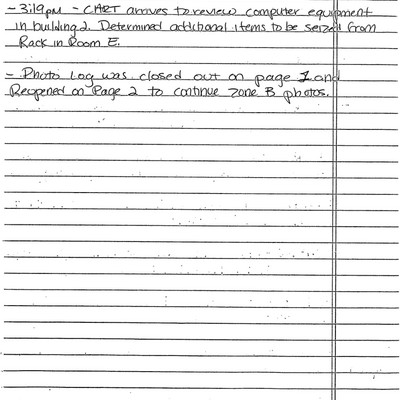 - 3:19pm - CART arrives to review computer equipment
in building 2. Determined additional items to be seized from
Rack in Room E.
- Photo Log was closed out on page 1 and
Reopened on Page 2 to continue zone B photos.